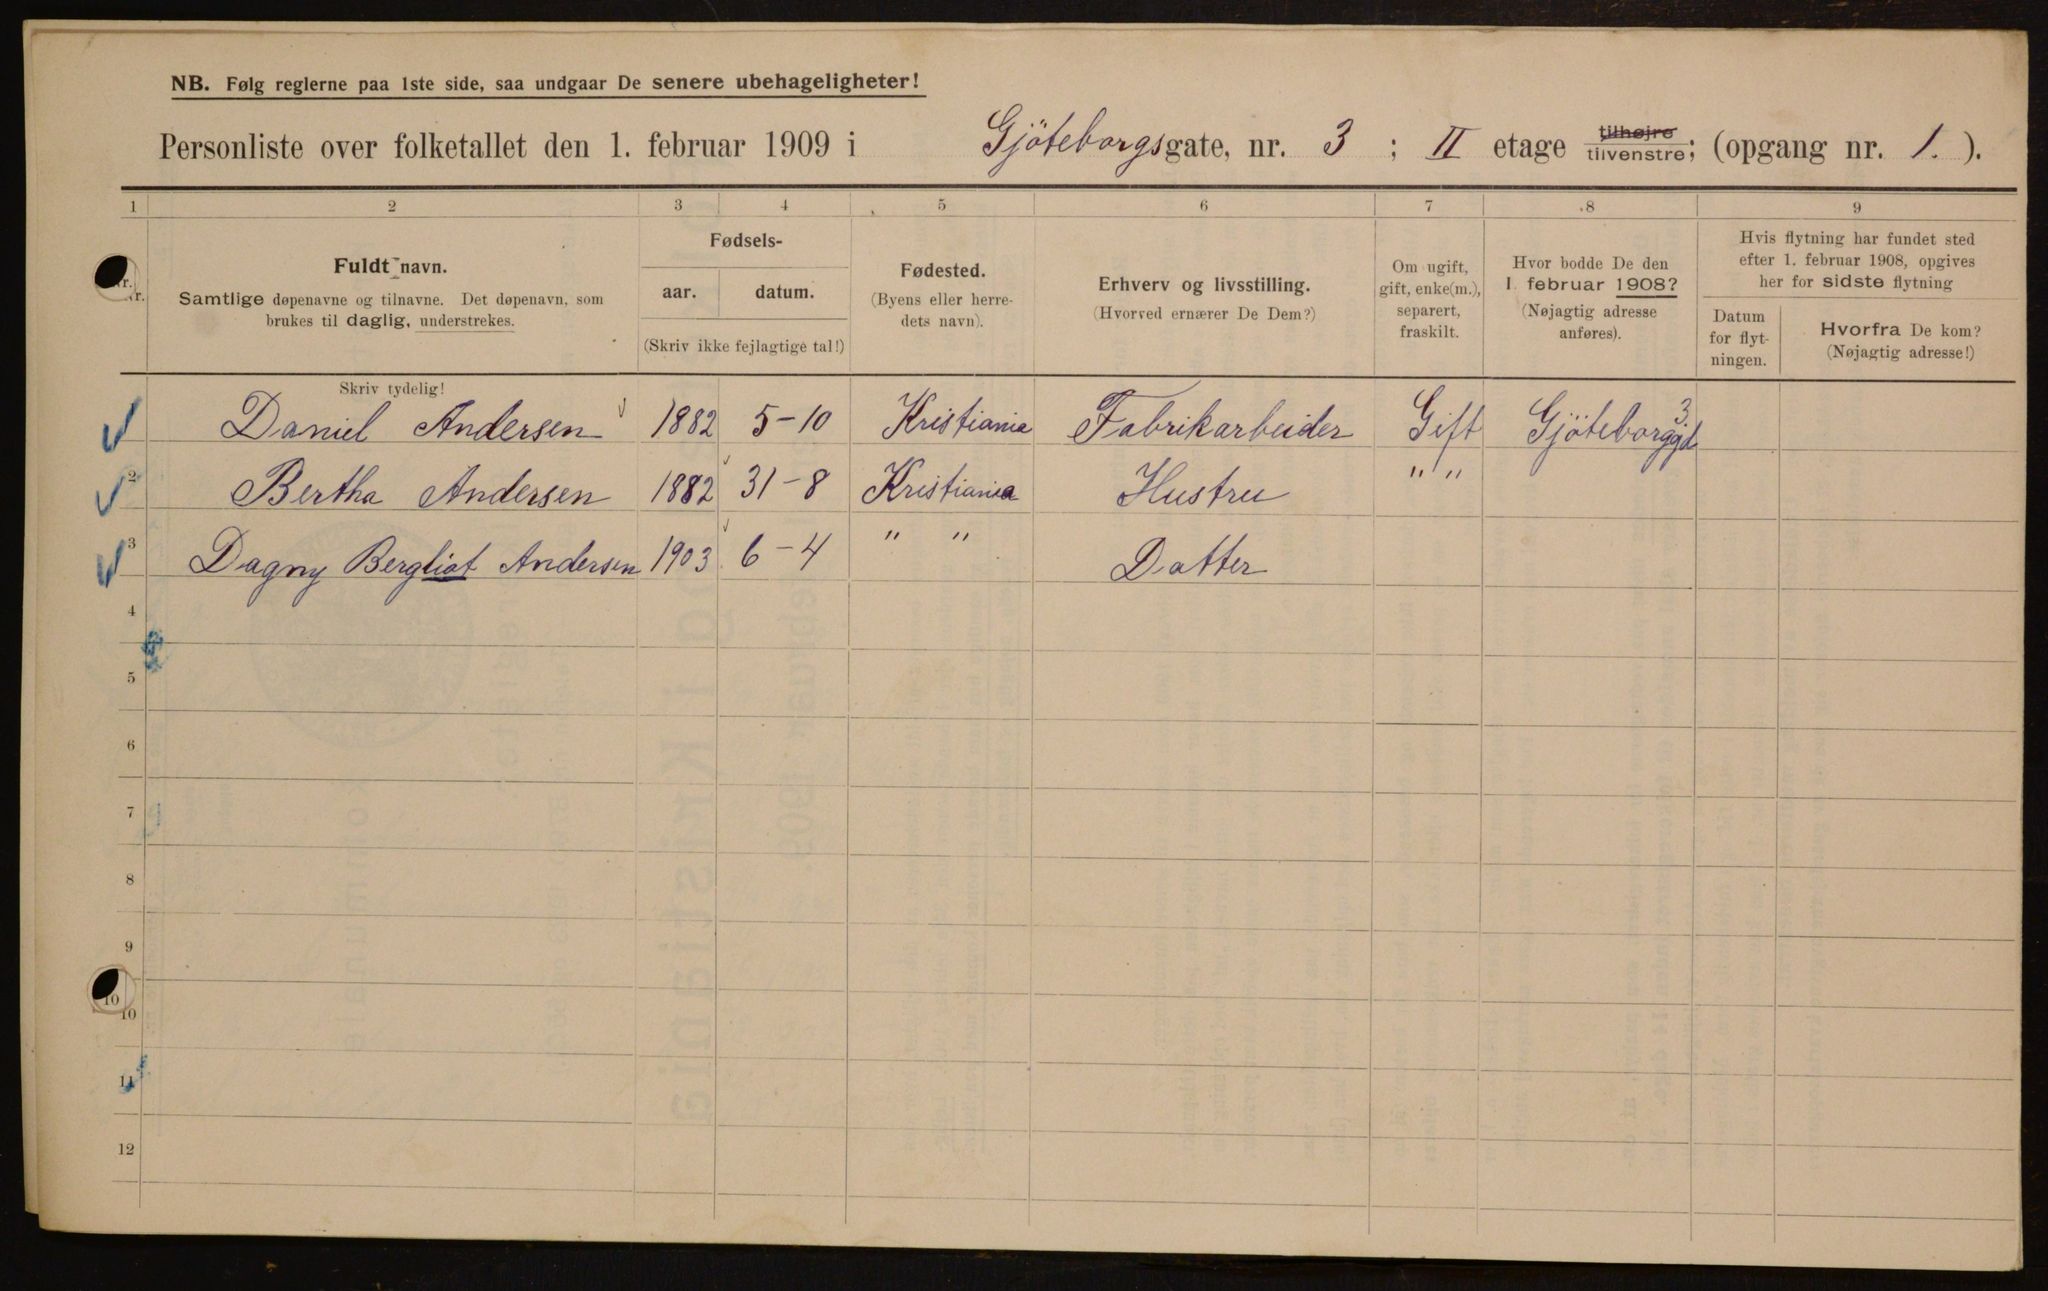 NB. Følg reglerne paa 1ste side, saa undgaar De senere ubehageligheter!
Personliste over folketallet den 1. februar 1909 i Gjöteborgsgate, nr. 3 ; II etage tilhøjre tilvenstre; (opgang nr. 1. ).
1 2 3 4 5 6 7 8 9
Fuldt navn.
Samtlige døpenavne og tilnavne. Det døpenavn, som
brukes til daglig, understrekes.
Skriv tydelig!
Fødsels-
aar. datum.
(Skriv ikke fejlagtige tal!)
Fødested.
(Byens eller herre-
dets navn).
Erhverv og livsstilling.
(Hvorved ernærer De Dem?)
Om ugift,
gift, enke(m.),
separert,
fraskilt.
Hvor bodde De den
1. februar 1908?
(Nøjagtig adresse
anføres).
Hvis flytning har fundet sted
efter 1. februar 1908, opgives
her for sidste flytning
Datum
for flyt-
ningen.
Hvorfra De kom?
(Nøjagtig adresse!)
Daniel Andersen 1882 5-10 Kristiania Fabrikarbeider Gift Gjöteborggd 3.
2 Bertha Andersen 1882 31-8 Kristiania Hustru " "
3 Dagny Bergliot Andersen 1903 6-4 " " Datter
4
5
6
7
8
9
10
10
11
12